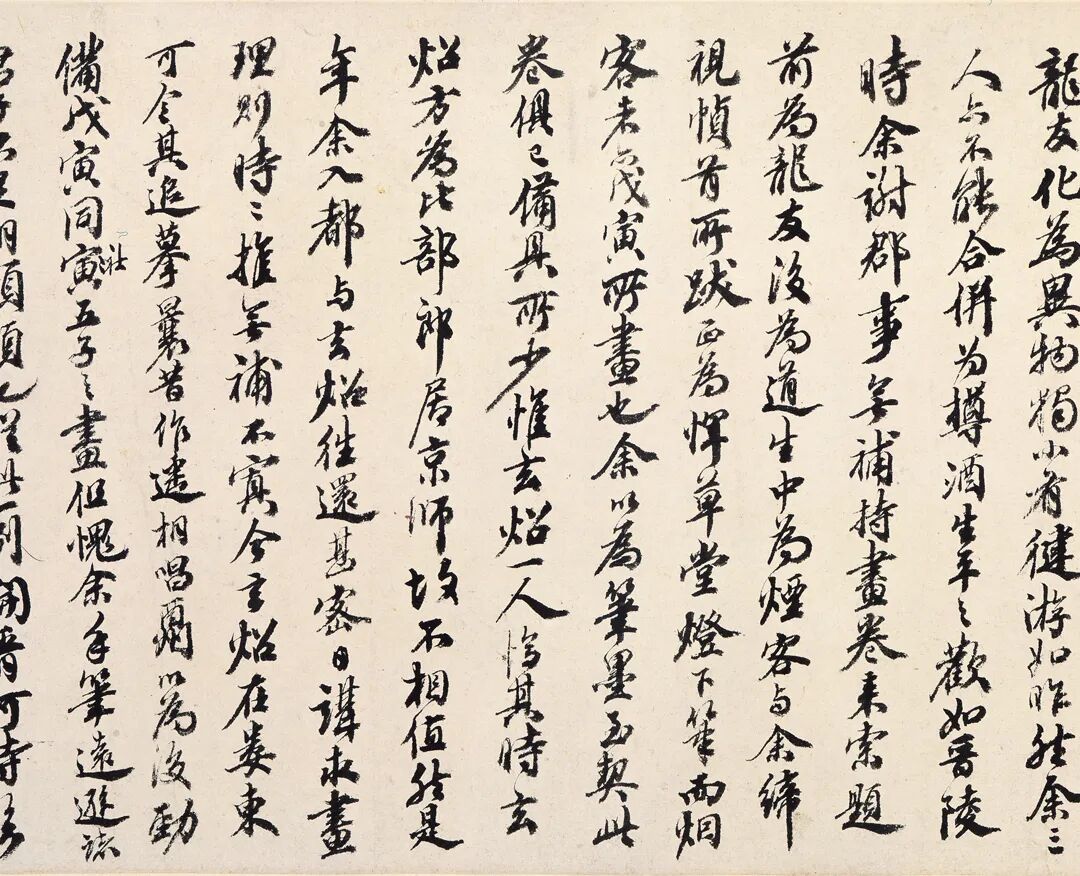 龍友化為異物獨小者健游如昨然余三
人亦不能合併为樽酒生平之歡如晉陵
時余謝郡事無補持畫卷来索題
前為龍友後為道生中為煙客与余締
視幀首所跋正為惲草堂燈下筆而烟
客未戊寅所畫也余以為筆墨至契此
卷俱已備具所少惟玄炤一人憶其時玄
炤方為比部郎居京師故不相值然是
年余入都与玄炤往還甚密日講求畫
理則時々推無補不寘今玄炤在婁東
可令其追摹曩昔作遞相唱酬以為後勁
備戊寅同寅五子之畫但愧余手筆遠遜諸